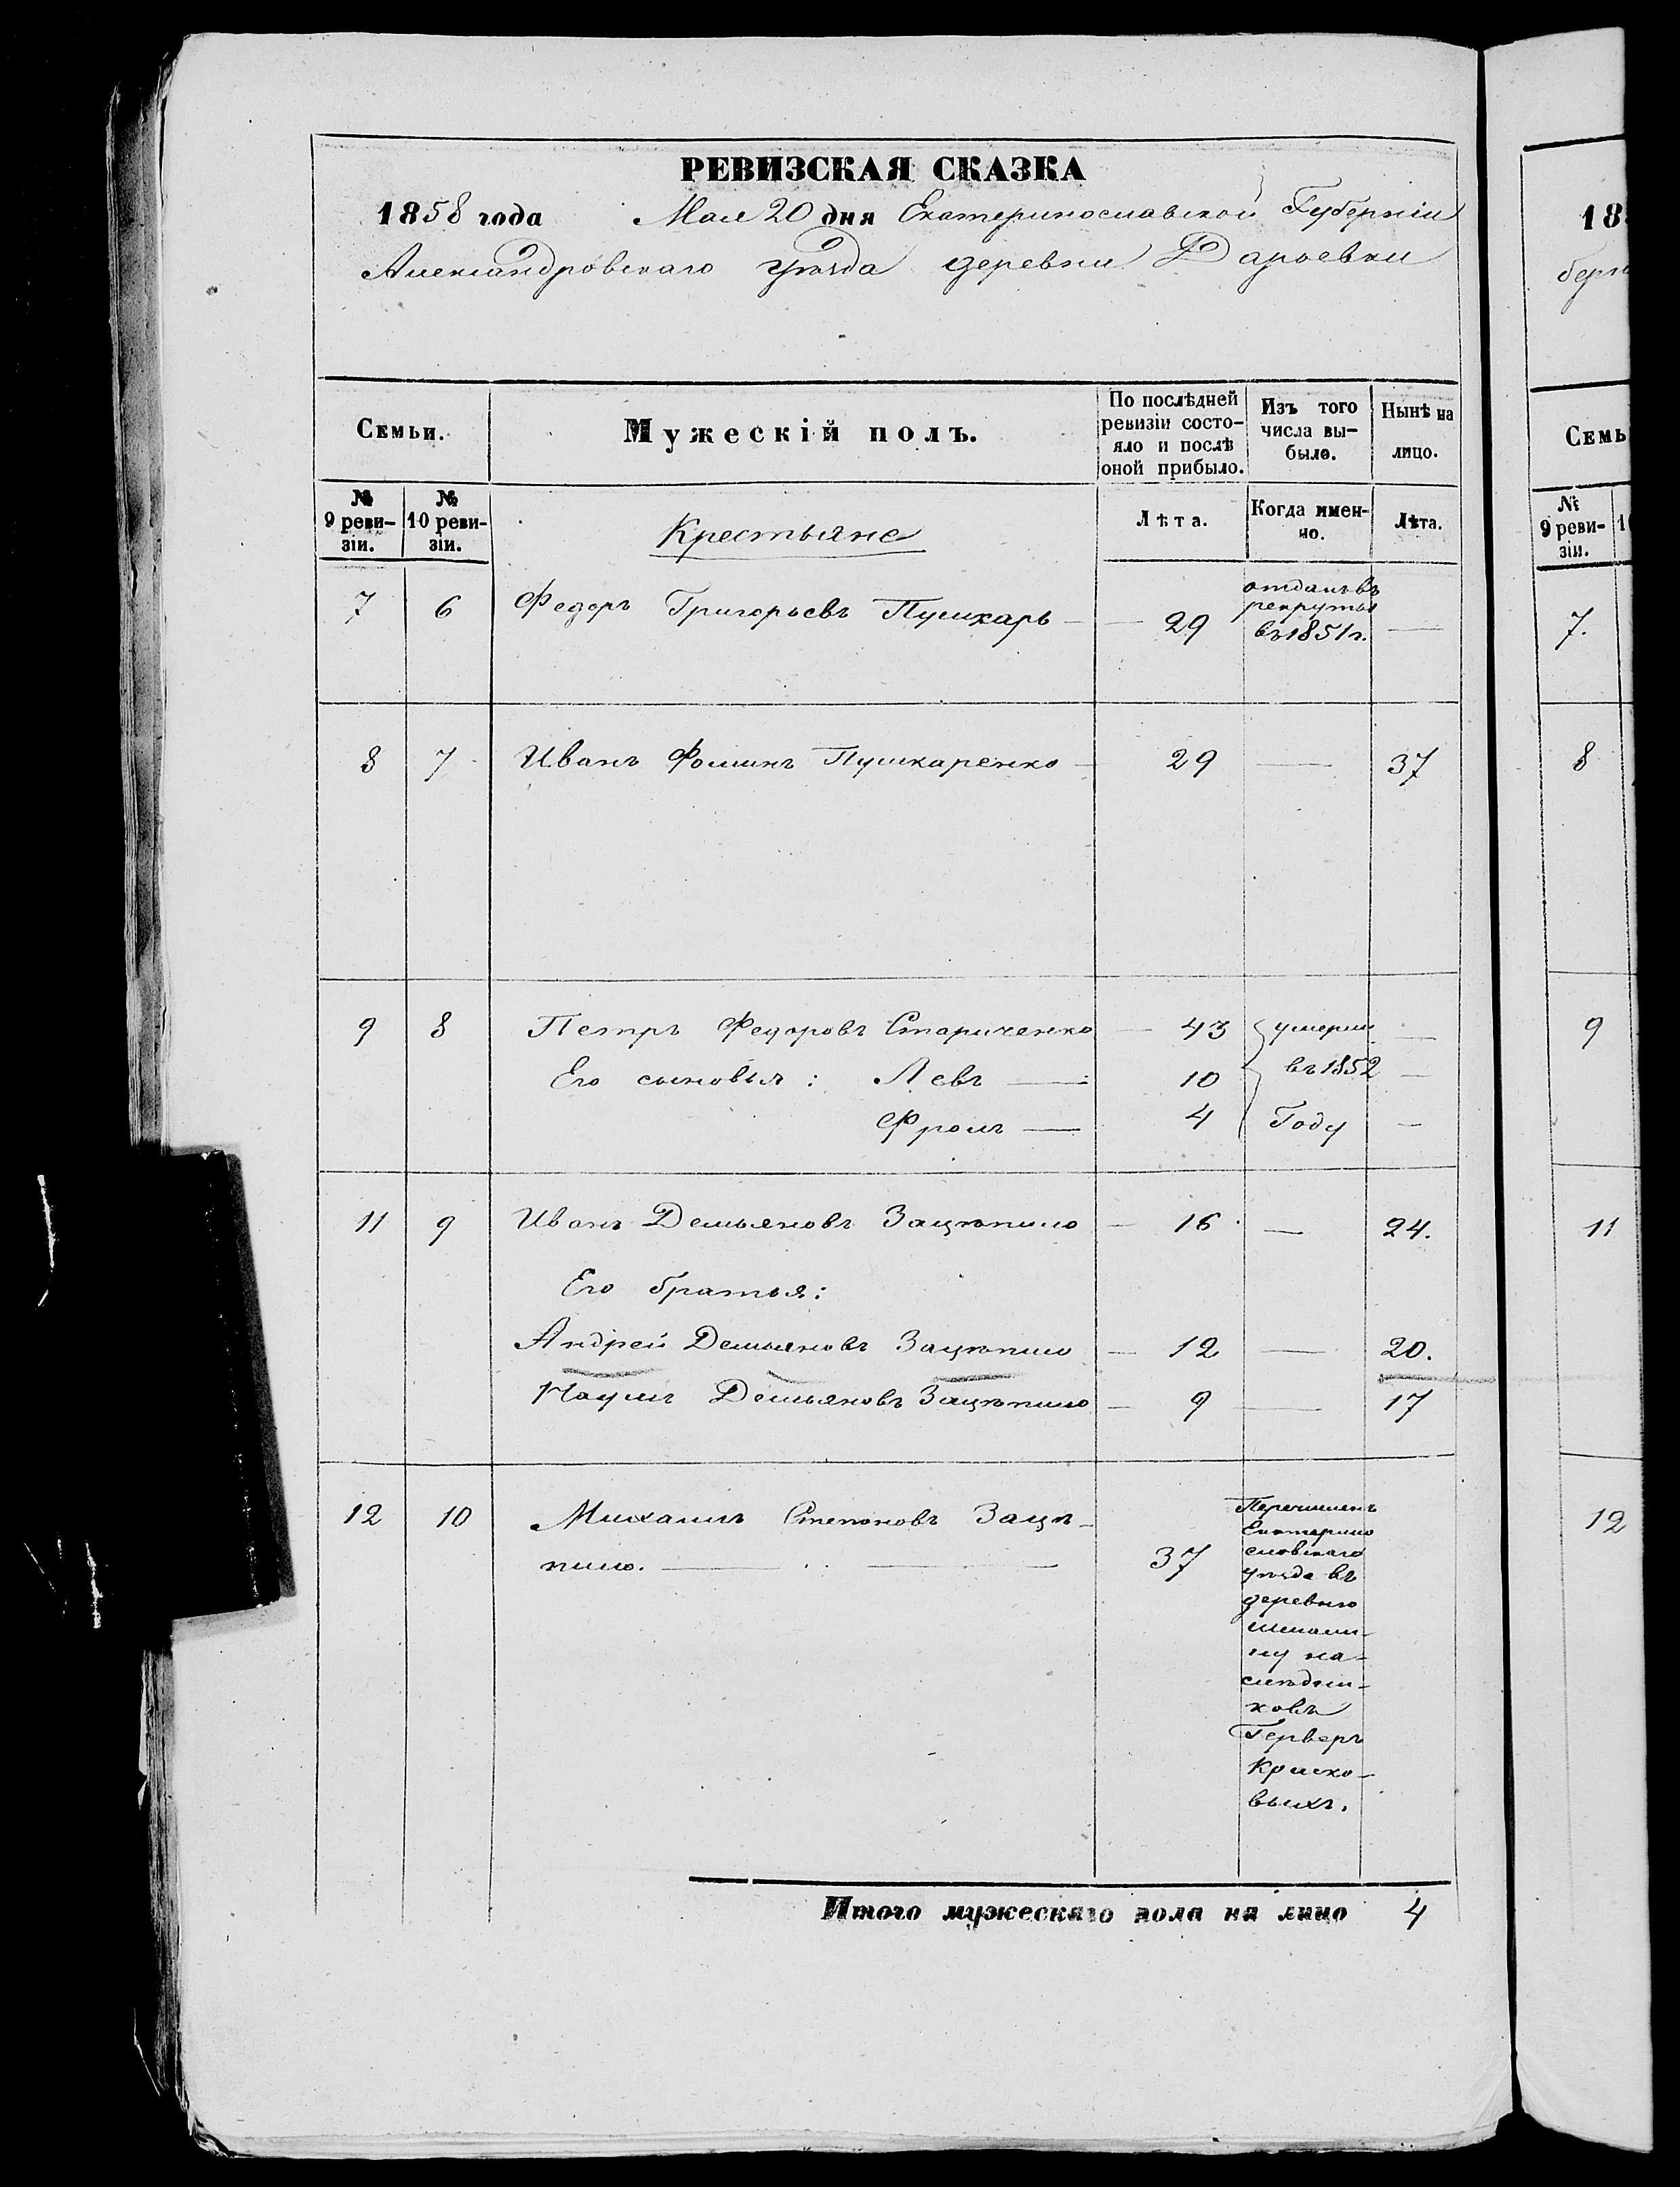 РЕВИЗСКАЯ СКАЗКА
1858 года Мая 20 дня Екатеринославской Губерніи
Александровскаго уѣзда деревни Дарьевки
Семьи.
Мужескій полъ.
По послѣдней ревизіи состо-
яло и послѣ оной прибыло.
Изъ того числа вы-
было.
Нынѣ на лицо.
№ 9 реви-
зіи.
№ 10 реви-
зіи.
Крестьяне
Лѣта.
Когда имен-
но.
Лѣта.
7 6 Федоръ Григорьевъ Пушкарь — 29 отданъ въ рекруты въ 1851 г. —
8 7 Иванъ Фоминъ Пушкаренко — 29 — 37
9 8 Петръ Федоровъ Стариченко — 43 умерли —
Его сыновья: Левъ — 10 въ 1852 —
Фролъ — 4 Году —
11 9 Иванъ Демьяновъ Зацѣпило — 16 — 24.
Его братья:
Андрей Демьяновъ Зацѣпило — 12 — 20.
Наумъ Демьяновъ Зацѣпило — 9 — 17
12 10 Михаилъ Степановъ Зацѣ-
пило. — 37
Перечисленъ
Екатерино
славскаго
уѣзда въ
деревню
ну на-
слѣдни-
ковъ
Герверъ
выхъ.
Итого мужескаго пола на лицо 4
18
бер
Семь
№ 9 реви-
зіи.
1
7.
8
9
11
12